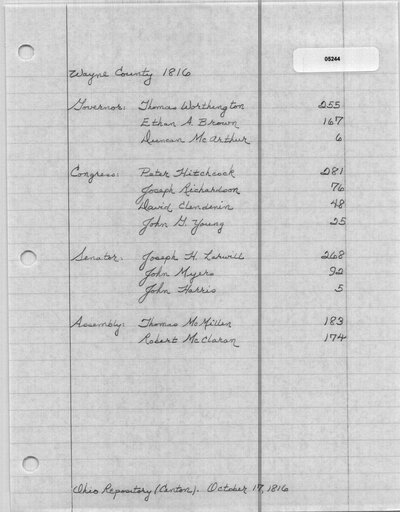 05244
Wayne County 1816
Governor: Thomas Worthington 255
Ethan A. Brown 167
Duncan McArthur 6
Congress: Peter Hitchcock 281
Joseph Richardson 76
David Clendenin 48
John G. Young 25
Senator: Joseph H. Larwill 268
John Myers 92
John Harris 5
Assembly: Thomas McMillen 183
Robert McClaran 174
Ohio Repository (Canton). October 17, 1816